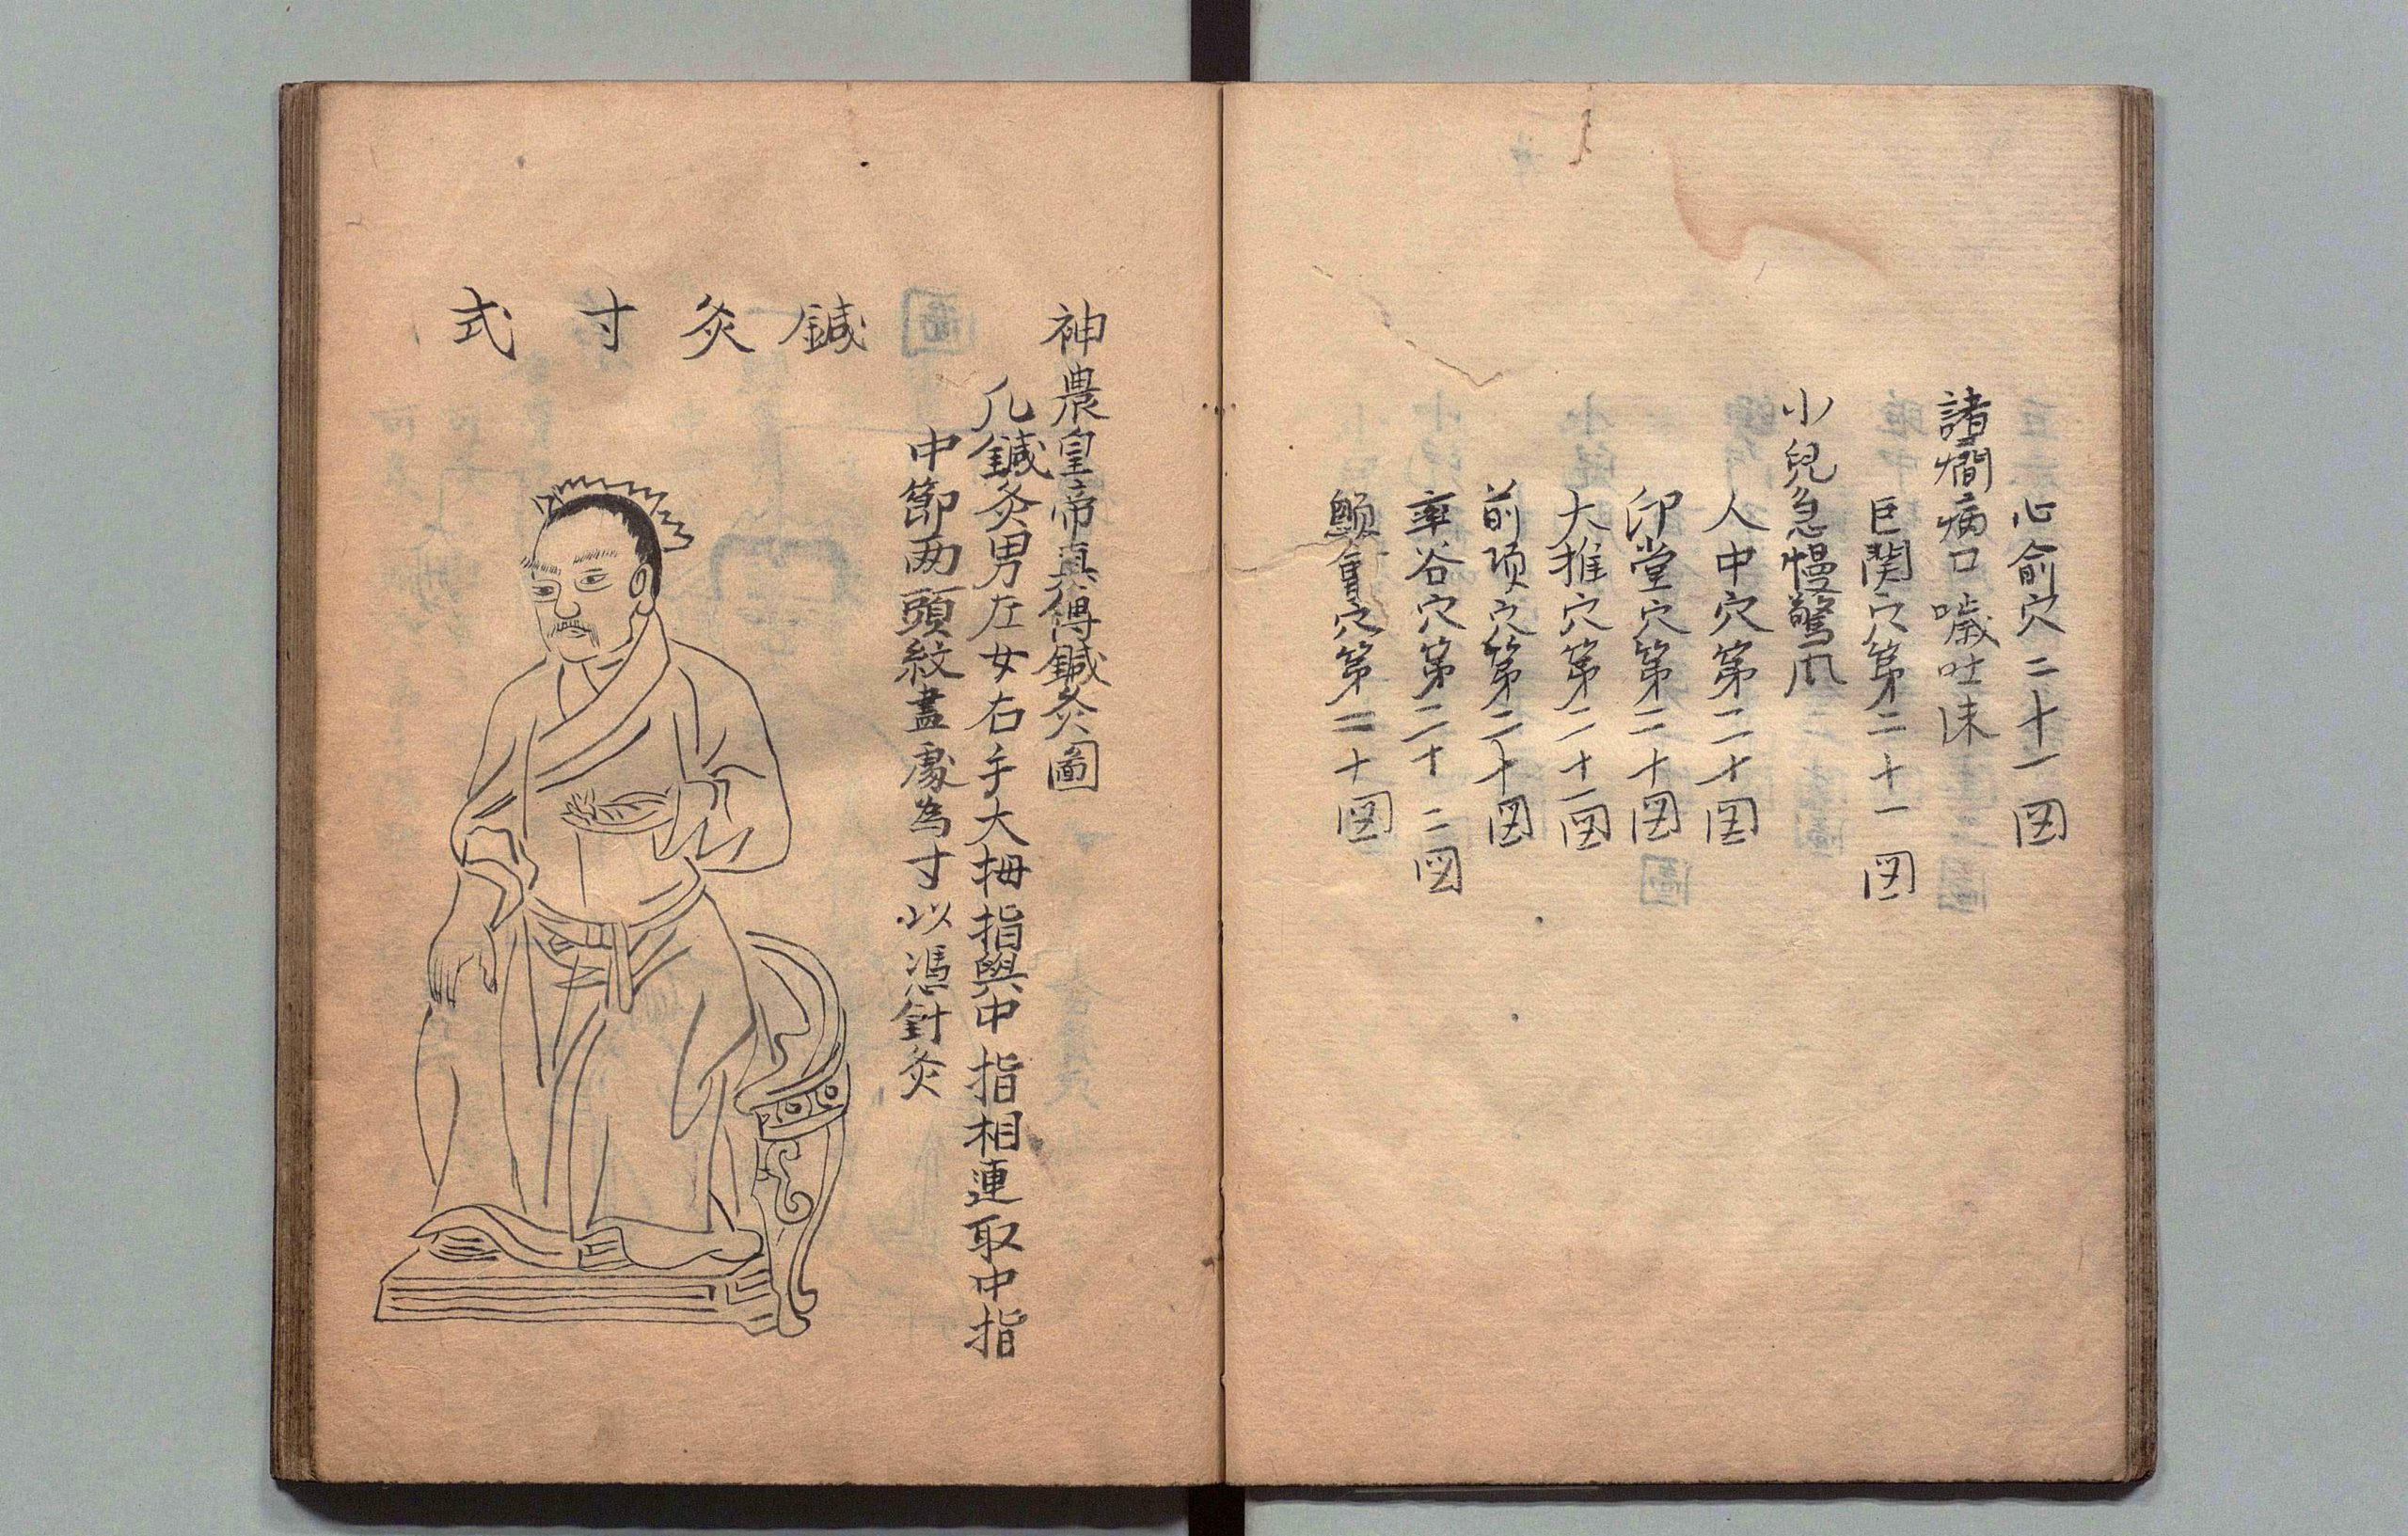 心俞穴二十一図
諸癎病口噦吐沫
巨関穴第二十一図
小兒急慢驚风
人中穴第二十図
印堂穴第二十図
大推穴第二十一図
前项穴第二十図
率谷穴第二十二図
顖會穴第二十図
神農皇帝真傳鍼灸圖
凢鍼灸男左女右手大拇指與中指相連取中指
中節两頭紋盡處為寸以憑針灸
鍼灸寸式